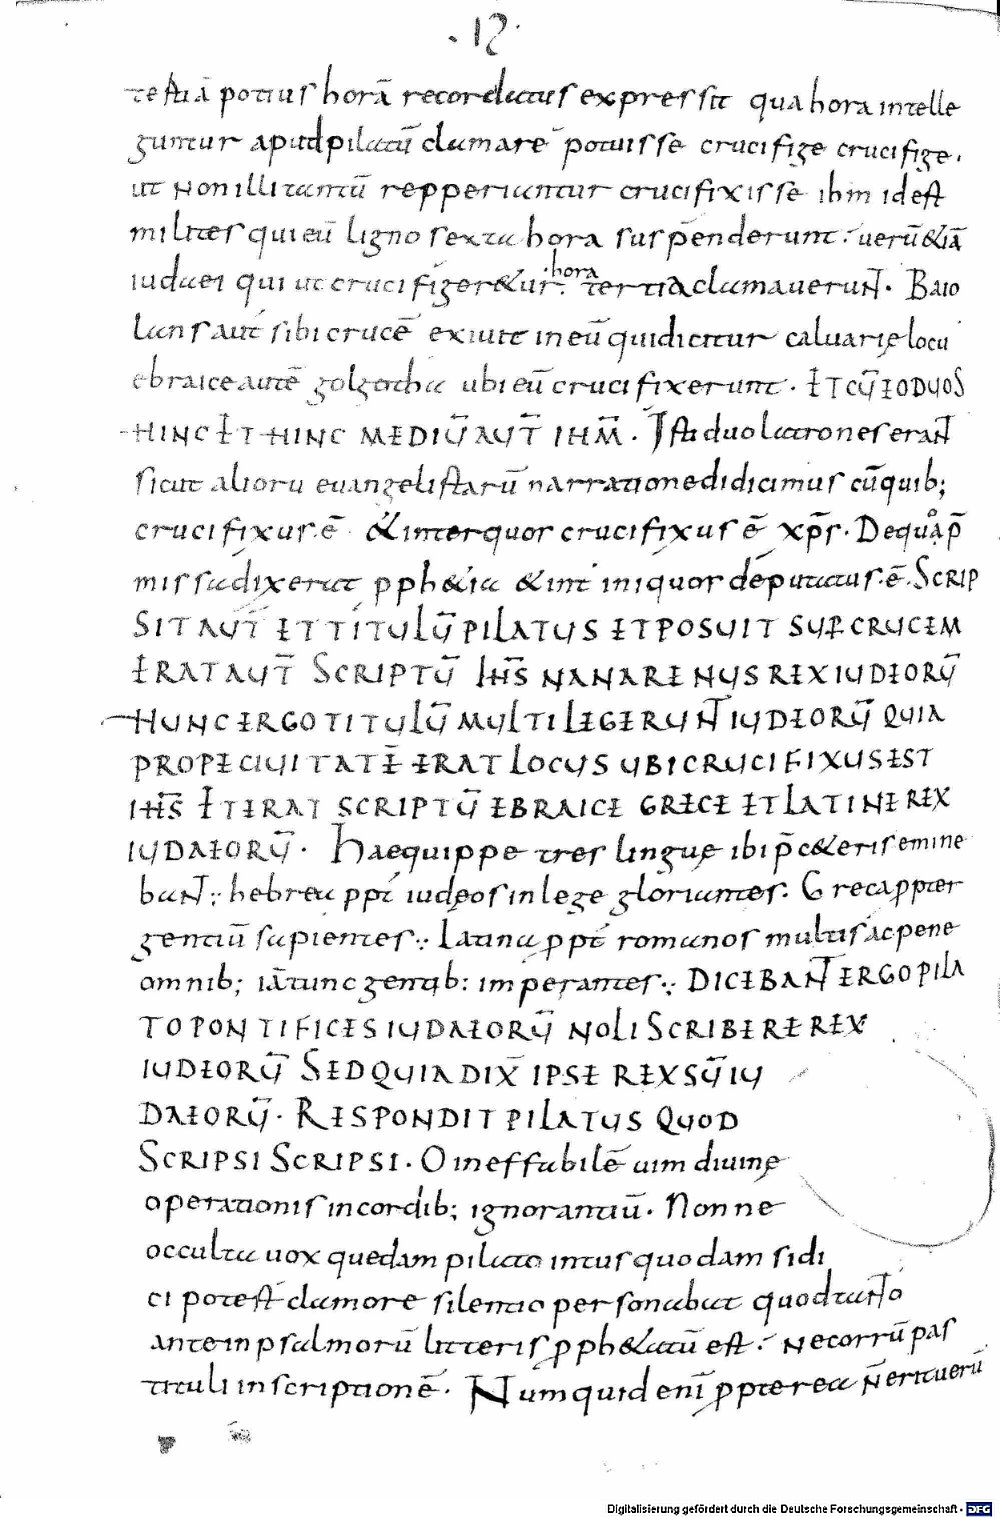 . 12 .
tertiā potius horā recordatus expressit qua hora intelle
guntur apud pilatū clamare potuisse crucifige crucifige.
ut non illi tantū repperiantur crucifixisse ihm id est
milites qui eū ligno sexta hora suspenderunt. uerū &iā
iudaei qui ut crucifiger&ur. hora tertia clamauerunt. Baio
lans aut sibi crucē exiuit in eū qui dicitur caluarię locū
ebraice autē golgotha ubi eū crucifixerunt. ET CŪ EO DUOS
HINC ET HINC MEDIŪ AUT̄ IHM̄. Isti duo latrones erant
sicut alioru euangelistarū narratione didicimus cū quib;
crucifixus ē & inter quos crucifixus ē xp̄s. De qua p̄
missa dixerat pph&ia & int iniquos deputatus ē. SCRIP
SIT AUT̄ ET TITULŪ PILATUS ET POSUIT SUP CRUCEM
ERAT AUT̄ SCRIPTŪ IHS̄ NANARENUS REX IUDEORŪ
HUNC ERGO TITULŪ MULTI LEGERUNT IUDEORŪ QUIA
PROPE CIUITATĒ ERAT LOCUS UBI CRUCIFIXUS EST
IHS̄ ET ERAT SCRIPTŪ EBRAICE GRECE ET LATINE REX
IUDAEORŪ. Hae quippe tres linguę ibi p̄ c&eris emine
bant; hebrea ppt iudęos in lege gloriantes. Greca ppter
gentiū sapientes; latina ppt romanos multis ac pene
omnib; iā tunc gentib: imperantes; DICEBANT ERGO PILA
TO PONTIFICES IUDAEORŪ NOLI SCRIBERE REX
IUDEORŪ SED QUIA DIX̄ IPSE REX SŪ IU
DAEORŪ. RESPONDIT PILATUS QUOD
SCRIPSI SCRIPSI. O ineffabilē uim diuinę
operationis in cordib; ignorantiū. Nonne
occulta uox quedam pilato intus quodam si di
ci potest clamore silentio personabat quod tanto
ante in psalmorū litteris pph&atū est. ne corrūpas
tituli inscriptionē. Numquid enī ppterea n̄ erit uerū
Digitalisierung gefördert durch die Deutsche Forschungsgemeinschaft - DFG